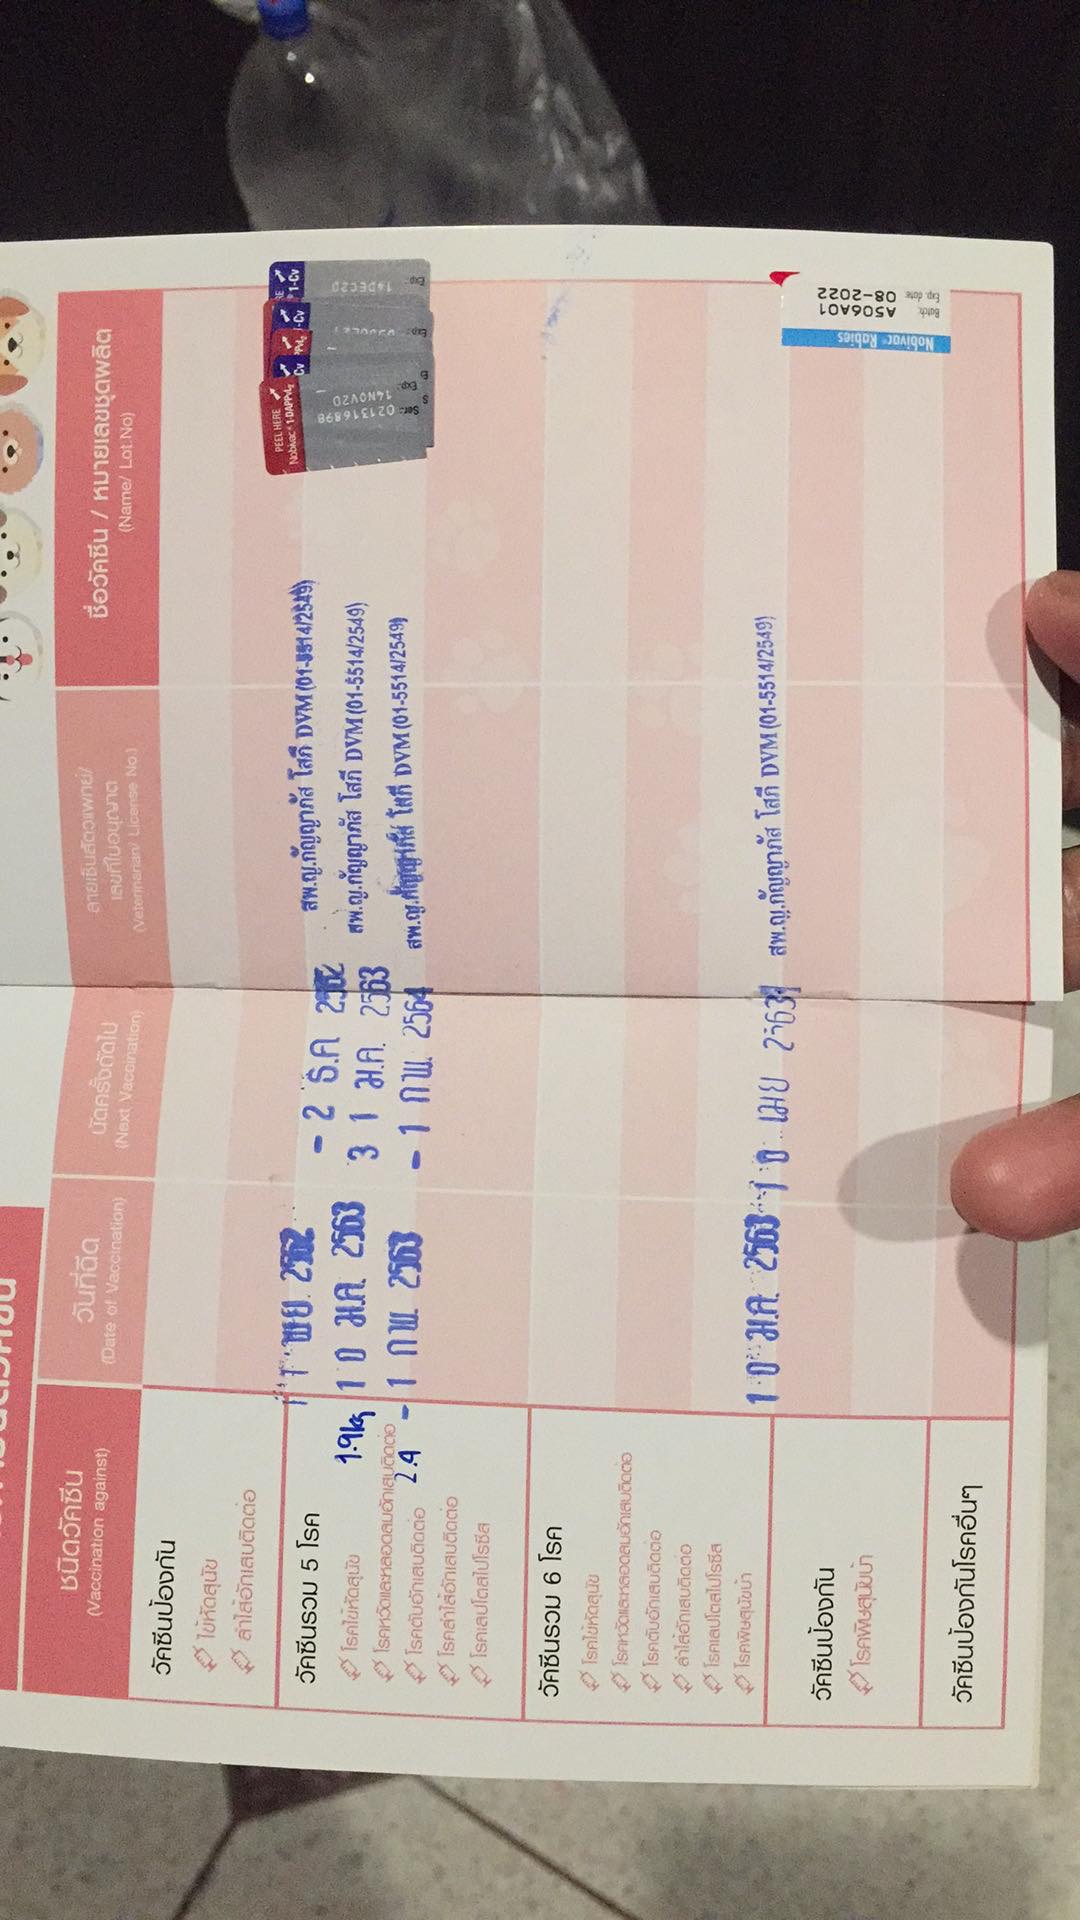 ชนิดวัคซีน
(Vaccination against)
วันที่ฉีด
(Date of Vaccination)
นัดครั้งต่อไป
(Next Vaccination)
ลายเซ็นสัตวแพทย์/
เลขที่ใบอนุญาต
(Veterinarian/ License No.)
ชื่อวัคซีน / หมายเลขชุดผลิต
(Name/ Lot.No)
วัคซีนป้องกัน
ไข้หัดสุนัข
ลำไส้อักเสบติดต่อ
วัคซีนรวม 5 โรค
โรคไข้หัดสุนัข
โรคหวัดและหลอดลมอักเสบติดต่อ
โรคตับอักเสบติดต่อ
โรคลำไส้อักเสบติดต่อ
โรคเลปโตสไปโรซีส
พ.ย. 2562
- 2 ธ.ค 2562
สพ.ญ.กัญญาภัส โสภี DVM (01-5514/2549)
1.9kg
1 0 ม.ค. 2563
3 1 ม.ค. 2563
สพ.ญ.กัญญาภัส โสภี DVM (01-5514/2549)
2.4
- 1 ก.พ. 2563
- 1 ก.พ. 2564
สพ.ญ.กัญญาภัส โสภี DVM (01-5514/2549)
1-Cv
Exp.:
14DEC20
PEEL HERE
Nobivac® 1-DAPPvL2
Ser.: 0213168 9B
Exp.: 14NOV20
วัคซีนรวม 6 โรค
โรคไข้หัดสุนัข
โรคหวัดและหลอดลมอักเสบติดต่อ
โรคตับอักเสบติดต่อ
ลำไส้อักเสบติดต่อ
โรคเลปโตสไปโรซีส
โรคพิษสุนัขบ้า
วัคซีนป้องกัน
โรคพิษสุนัขบ้า
1 0 ม.ค. 2563
1 0 เมย
สพ.ญ.กัญญาภัส โสภี DVM (01-5514/2549)
Nobivac® Rabies
Batch: A506A01
Exp. date: 08-2022
วัคซีนป้องกันโรคอื่นๆ